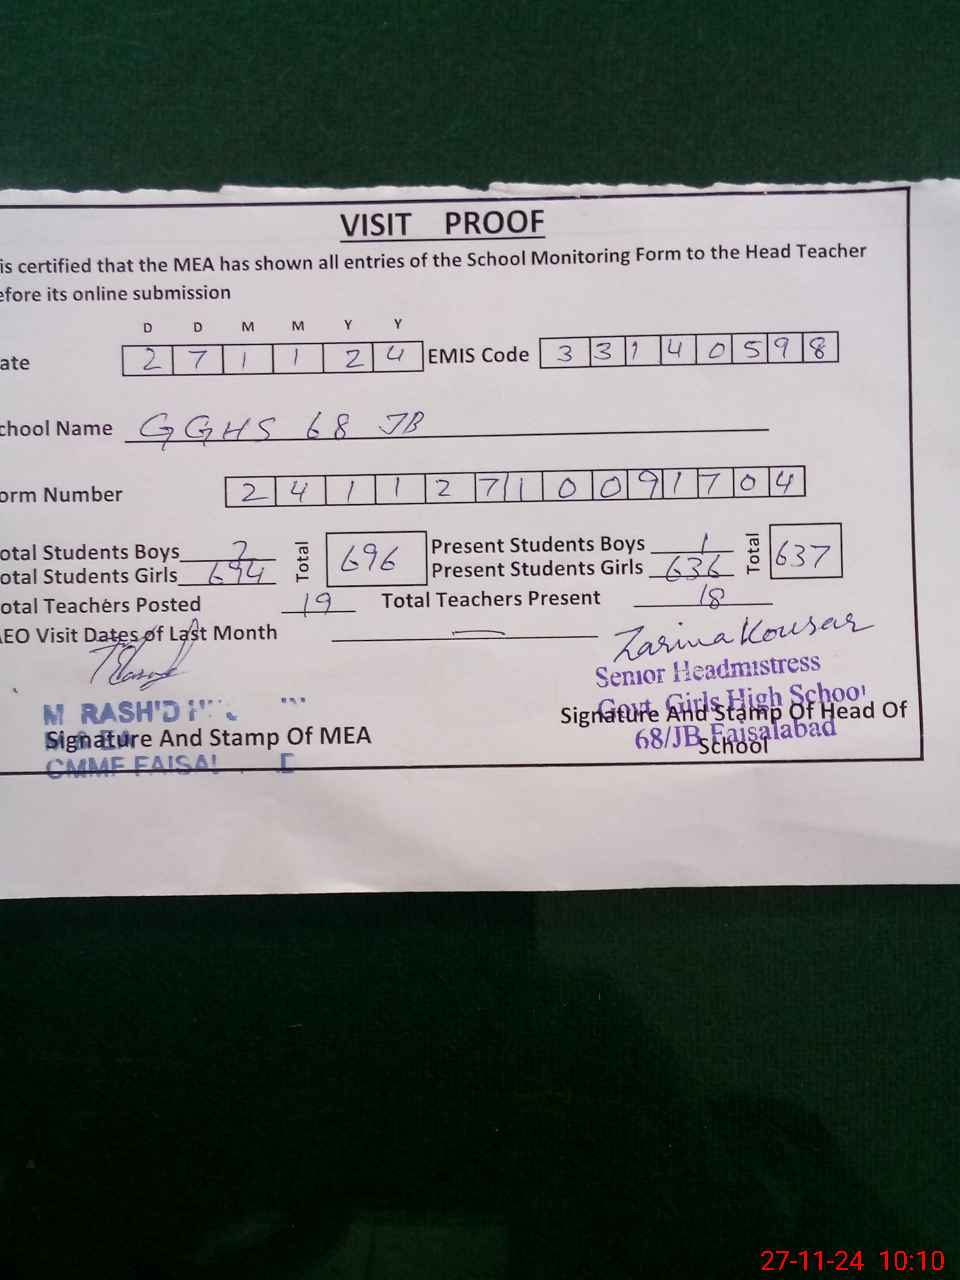 VISIT PROOF
is certified that the MEA has shown all entries of the School Monitoring Form to the Head Teacher
efore its online submission
D D M M Y Y
ate 2 7 1 1 2 4 EMIS Code 3 3 1 4 0 5 9 8
chool Name GGHS 68 JB
orm Number 2 4 1 1 2 7 1 0 0 9 1 7 0 4
otal Students Boys 2 Total 696 Present Students Boys 1 Total 637
otal Students Girls 694 Present Students Girls 636
otal Teachers Posted 19 Total Teachers Present 18
AEO Visit Dates of Last Month —
Zarina Kousar
Senior Headmistress
Govt. Girls High School
68/JB Faisalabad
M RASHID
Signature And Stamp Of MEA
CMMF FAISAL
Signature And Stamp Of Head Of
School
27-11-24 10:10